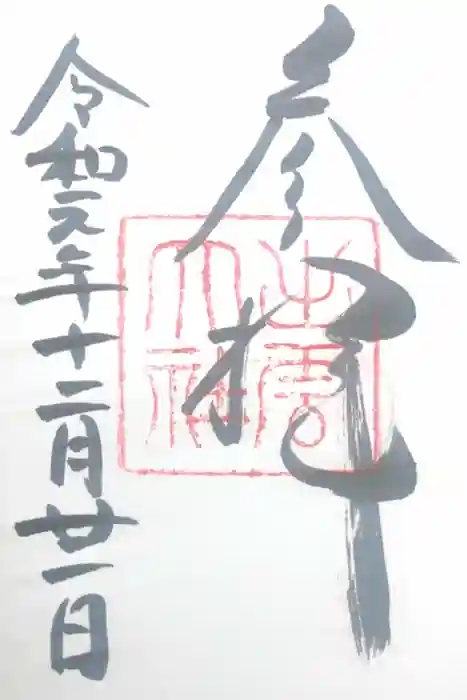 参拝
出雲大社
令和元年十二月廿一日